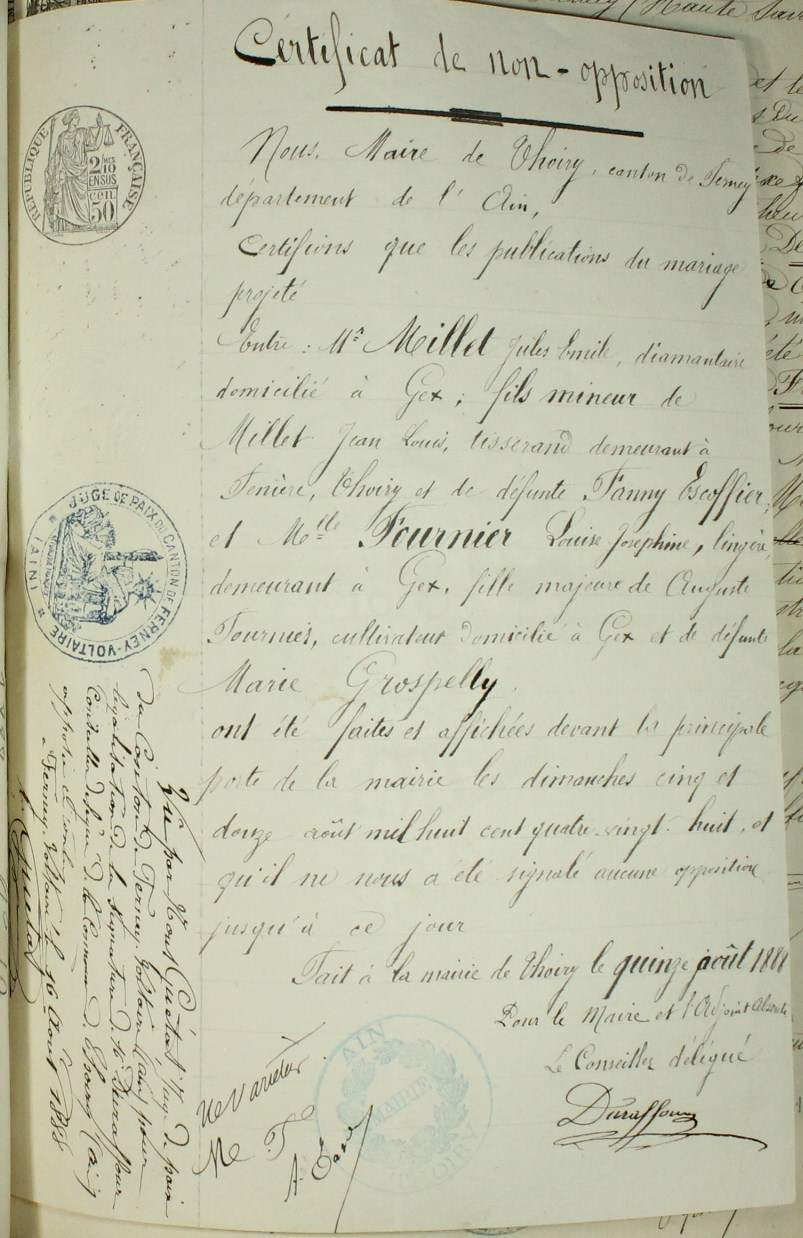 Certificat de non-opposition
Nous, Maire de Thoiry, canton de Ferney
département de l'Ain,
Certifions que les publications du mariage
projeté
Entre : Mr Millet Jules Emile, diamantaire
domicilié à Gex ; fils mineur de
Millet Jean Louis, tisserand demeurant à
Fenière, Thoiry et de défunte Fanny Escoffier,
et Melle Fournier Louise Josephine, lingère,
demeurant à Gex, fille majeure de Auguste
Fournier, cultivateur domicilié à Gex et de défunte
Marie Grospelly.
ont été faites et affichées devant la principale
porte de la mairie les dimanches cinq et
douze août mil huit cent quatre-vingt-huit, et
qu'il ne nous a été signalé aucune opposition
jusqu'à ce jour
Fait à la mairie de Thoiry le quinze août 1888
Pour le Maire et l'Adjoint absents
Le Conseiller délégué
Duraffour
Ne Varietur
RÉPUBLIQUE FRANÇAISE
2/10 EN SUS
50 cen
JUGE DE PAIX DU CANTON DE FERNEY-VOLTAIRE
(AIN)
Vu par Nous Juge de paix
du Canton de Ferney-Voltaire (Ain) pour
légalisation de la signature de Mr Duraffour
Conseiller délégué de la Commune de Thoiry (Ain)
apposée ci-contre
à Ferney-Voltaire le 16 Août 1888
MAIRIE
AIN
THOIRY